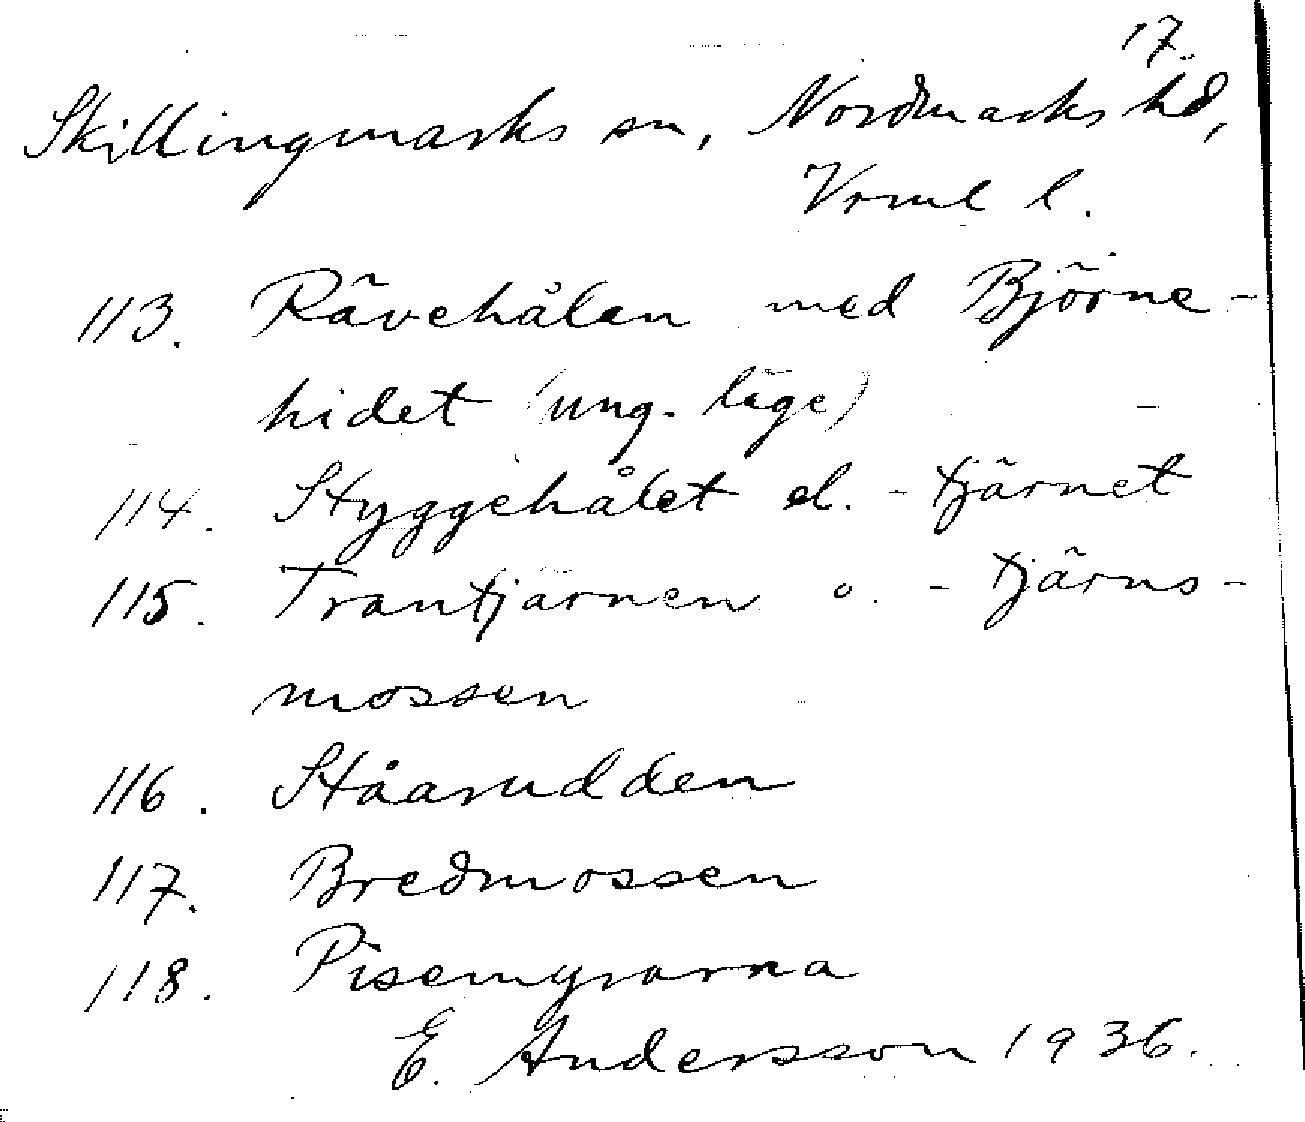 17.
Skillingmarks sn, Nordmarks hd,
Vrml l.
113. Rävehålan med Björne-
hidet (ung. läge)
114. Styggehålet el. -tjärnet
115. Trantjärnen o. -tjärns-
mossen
116. Ståarudden
117. Bredmossen
118. Pisemyrarna
E. Andersson 1936.